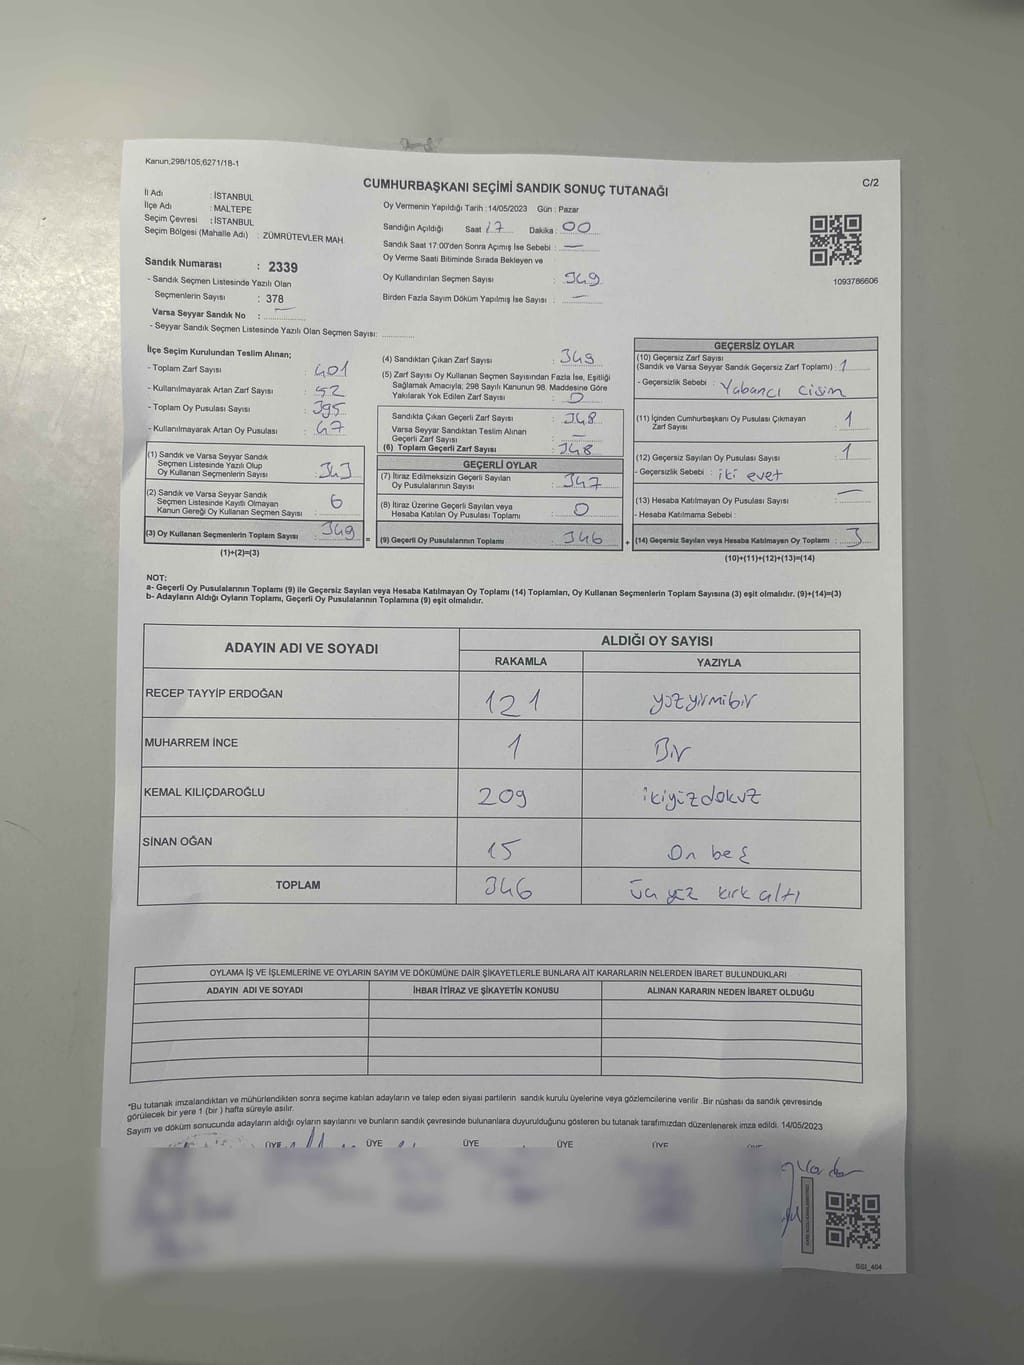 Kanun;298/105,6271/18-1
C/2
CUMHURBAŞKANI SEÇİMİ SANDIK SONUÇ TUTANAĞI
İl Adı : İSTANBUL
İlçe Adı : MALTEPE
Seçim Çevresi : İSTANBUL
Seçim Bölgesi (Mahalle Adı) : ZÜMRÜTEVLER MAH.
Sandık Numarası : 2339
- Sandık Seçmen Listesinde Yazılı Olan
Seçmenlerin Sayısı : 378
Varsa Seyyar Sandık No : —
- Seyyar Sandık Seçmen Listesinde Yazılı Olan Seçmen Sayısı:
Oy Vermenin Yapıldığı Tarih :14/05/2023 Gün : Pazar
Sandığın Açıldığı Saat 17 Dakika: 00
Sandık Saat 17:00'den Sonra Açımış İse Sebebi : —
Oy Verme Saati Bitiminde Sırada Bekleyen ve :
Oy Kullandırılan Seçmen Sayısı : 349
Birden Fazla Sayım Döküm Yapılmış İse Sayısı : —
1093786606
İlçe Seçim Kurulundan Teslim Alınan;
- Toplam Zarf Sayısı : 401
- Kullanılmayarak Artan Zarf Sayısı : 52
- Toplam Oy Pusulası Sayısı : 395
- Kullanılmayarak Artan Oy Pusulası : 47
(1) Sandık ve Varsa Seyyar Sandık
Seçmen Listesinde Yazılı Olup
Oy Kullanan Seçmenlerin Sayısı : 343
(2) Sandık ve Varsa Seyyar Sandık
Seçmen Listesinde Kayıtlı Olmayan
Kanun Gereği Oy Kullanan Seçmen Sayısı : 6
(3) Oy Kullanan Seçmenlerin Toplam Sayısı : 349
(1)+(2)=(3)
(4) Sandıktan Çıkan Zarf Sayısı : 349
(5) Zarf Sayısı Oy Kullanan Seçmen Sayısından Fazla İse, Eşitliği
Sağlamak Amacıyla; 298 Sayılı Kanunun 98. Maddesine Göre
Yakılarak Yok Edilen Zarf Sayısı : 0
Sandıkta Çıkan Geçerli Zarf Sayısı : 348
Varsa Seyyar Sandıktan Teslim Alınan
Geçerli Zarf Sayısı : —
(6) Toplam Geçerli Zarf Sayısı : 348
GEÇERLİ OYLAR
(7) İtiraz Edilmeksizin Geçerli Sayılan
Oy Pusulalarının Sayısı : 347
(8) İtiraz Üzerine Geçerli Sayılan veya
Hesaba Katılan Oy Pusulası Toplamı : 0
= (9) Geçerli Oy Pusulalarının Toplamı : 346
GEÇERSİZ OYLAR
(10) Geçersiz Zarf Sayısı
(Sandık ve Varsa Seyyar Sandık Geçersiz Zarf Toplamı) : 1
- Geçersizlik Sebebi : Yabancı cisim
(11) İçinden Cumhurbaşkanı Oy Pusulası Çıkmayan
Zarf Sayısı : 1
(12) Geçersiz Sayılan Oy Pusulası Sayısı : 1
- Geçersizlik Sebebi : iki evet
(13) Hesaba Katılmayan Oy Pusulası Sayısı : —
- Hesaba Katılmama Sebebi :
+ (14) Geçersiz Sayılan veya Hesaba Katılmayan Oy Toplamı : 3
(10)+(11)+(12)+(13)=(14)
NOT:
a- Geçerli Oy Pusulalarının Toplamı (9) ile Geçersiz Sayılan veya Hesaba Katılmayan Oy Toplamı (14) Toplamları, Oy Kullanan Seçmenlerin Toplam Sayısına (3) eşit olmalıdır. (9)+(14)=(3)
b- Adayların Aldığı Oyların Toplamı, Geçerli Oy Pusulalarının Toplamına (9) eşit olmalıdır.
ADAYIN ADI VE SOYADI
ALDIĞI OY SAYISI
RAKAMLA YAZIYLA
RECEP TAYYİP ERDOĞAN 121 yüzyirmibir
MUHARREM İNCE 1 Bir
KEMAL KILIÇDAROĞLU 209 ikiyüzdokuz
SİNAN OĞAN 15 On beş
TOPLAM 346 üç yüz kırk altı
OYLAMA İŞ VE İŞLEMLERİNE VE OYLARIN SAYIM VE DÖKÜMÜNE DAİR ŞİKAYETLERLE BUNLARA AİT KARARLARIN NELERDEN İBARET BULUNDUKLARI
ADAYIN ADI VE SOYADI İHBAR İTİRAZ VE ŞİKAYETİN KONUSU ALINAN KARARIN NEDEN İBARET OLDUĞU
*Bu tutanak imzalandıktan ve mühürlendikten sonra seçime katılan adayların ve talep eden siyasi partilerin sandık kurulu üyelerine veya gözlemcilerine verilir .Bir nüshası da sandık çevresinde
görülecek bir yere 1 (bir ) hafta süreyle asılır.
Sayım ve döküm sonucunda adayların aldığı oyların sayılarını ve bunların sandık çevresinde bulunanlara duyurulduğunu gösteren bu tutanak tarafımızdan düzenlenerek imza edildi. 14/05/2023
ÜYE ÜYE ÜYE ÜYE ÜYE
SSI_404